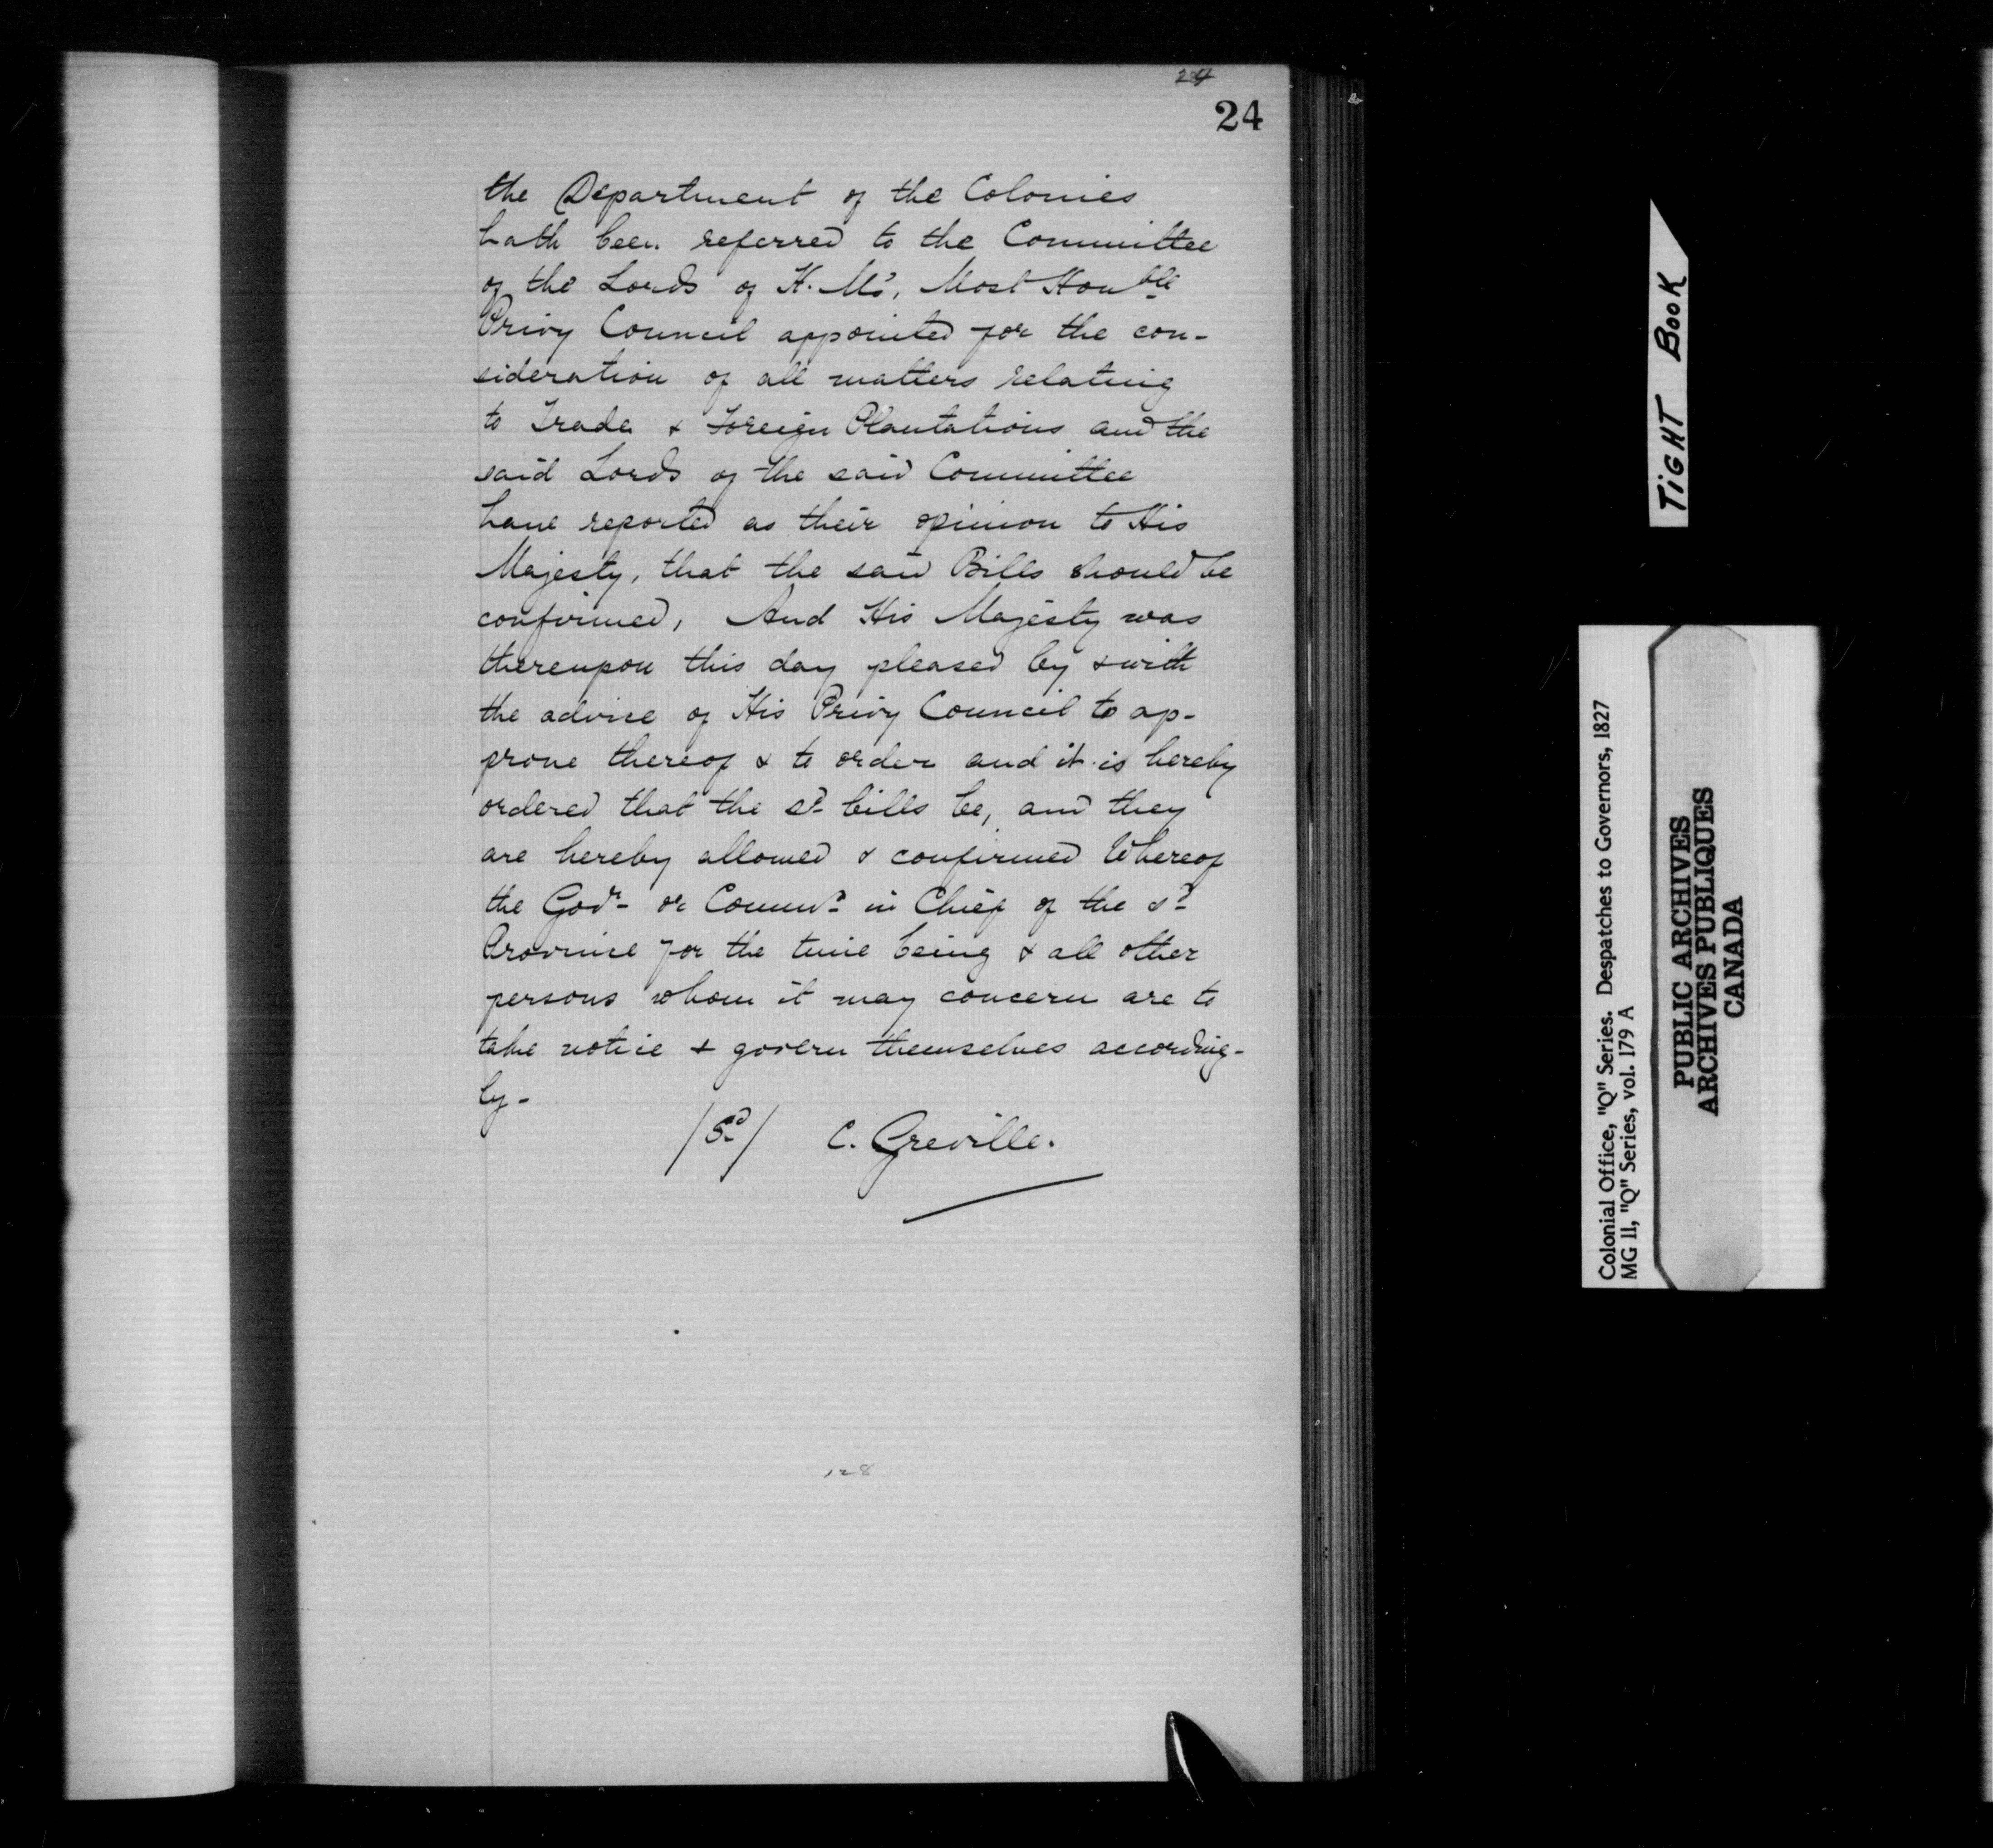 24
24
the Department of the Colonies
hath been referred to the Committee
of the Lords of H. M's. Most Honble
Privy Council appointed for the con-
sideration of all matters relating
to Trade & Foreign Plantations and the
said Lords of the said Committee
have reported as their opinion to His
Majesty, that the said Bills should be
confirmed, And His Majesty was
thereupon this day pleased by & with
the advice of His Privy Council to ap-
prove thereof & to order and it is hereby
ordered that the sd bills be, and they
are hereby allowed & confirmed Whereof
the Govr or Commr in Chief of the sd
Province for the time being & all other
persons whom it may concern are to
take notice & govern themselves according-
ly-
/Sd/ C. Greville.
128
TIGHT BOOK
Colonial Office, "Q" Series. Despatches to Governors, 1827
MG 11, "Q" Series, vol. 179 A
PUBLIC ARCHIVES
ARCHIVES PUBLIQUES
CANADA